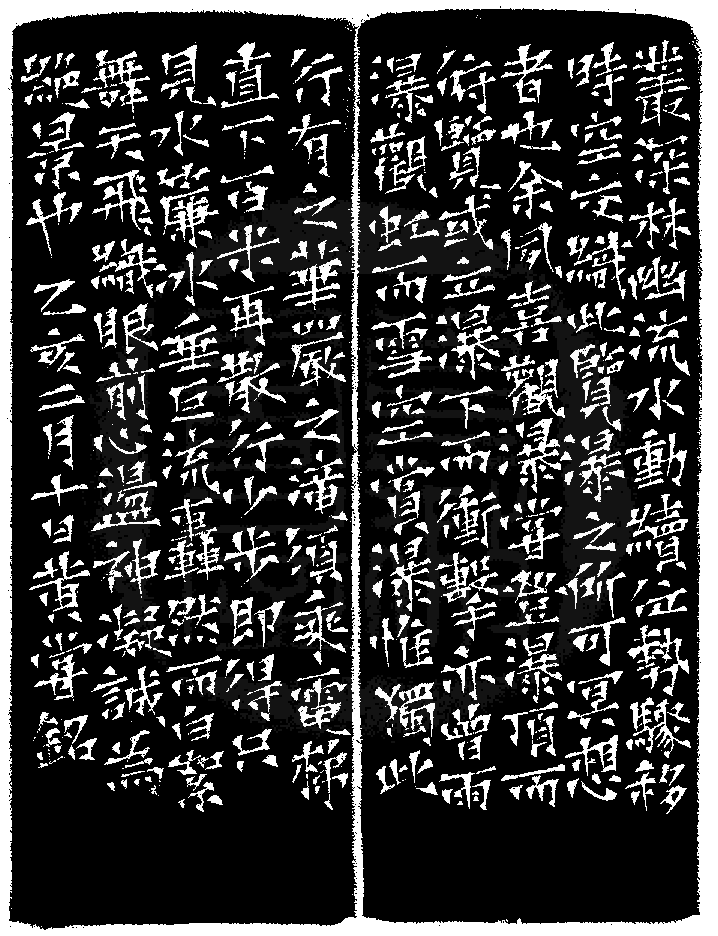 叢深林幽流水動續位勢驟移
時空交織此覽瀑之所可冥想
者也余夙喜觀瀑嘗登瀑頂而
俯覽或立瀑下而衝擊亦曾雨
瀑觀虹而雪空賞瀑惟獨此
行有之華嚴之瀑須乘電梯
直下百米再散行少步即得只
見水簾冰垂巨流轟轟然而白絮
舞天飛織眼前心盪神凝誠為
絕景也 乙亥二月十日黃嘗銘